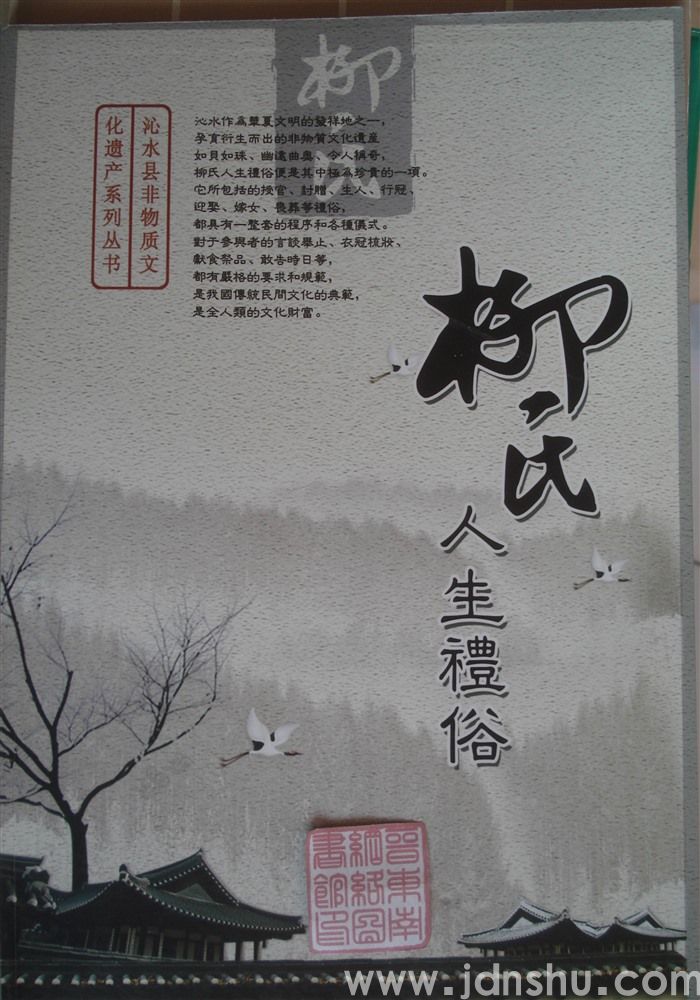 柳
氏
沁水县非物质文
化遗产系列丛书
沁水作為華夏文明的發祥地之一，
孕育衍生而出的非物質文化遺産
如貝如珠、幽遠曲奥、令人稱奇，
柳氏人生禮俗便是其中極為珍貴的一項。
它所包括的授官、封贈、生人、行冠、
迎娶、嫁女、喪葬等禮俗，
都具有一整套的程序和各種儀式。
對于參與者的言談舉止、衣冠梳妝、
獻食祭品、敢告時日等，
都有嚴格的要求和規範，
是我國傳統民間文化的典範，
是全人類的文化財富。
柳氏
人生禮俗
晉東南
網絡圖
書館印
www.jdnshu.com